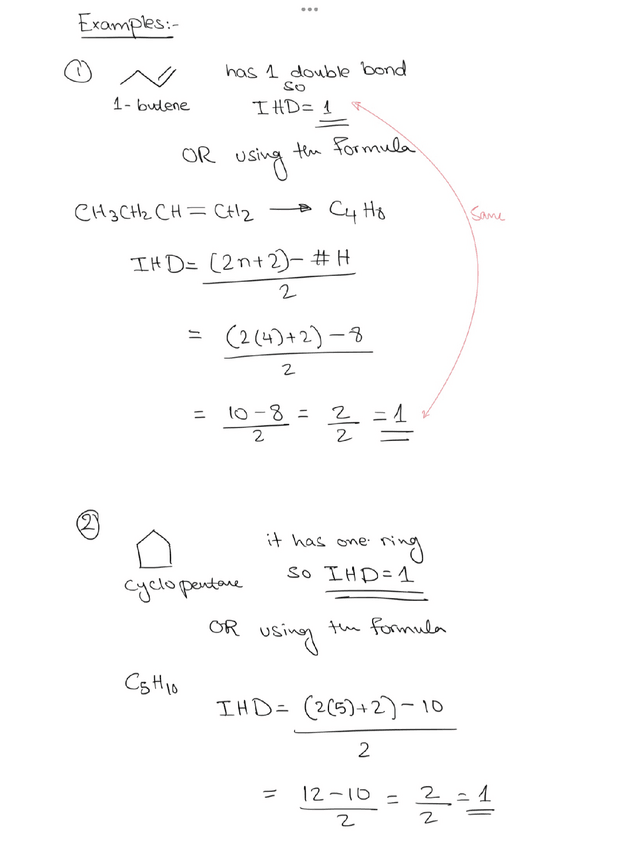 Examples:-
① has 1 double bond
so
1-butene IHD= 1
OR using the formula
CH3CH2CH=CH2 → C4H8
Same
IHD= (2n+2)-#H
2
= (2(4)+2)-8
2
= 10-8 = 2 = 1
2 2
② it has one ring
cyclopentane so IHD=1
OR using the formula
C5H10
IHD= (2(5)+2)-10
2
= 12-10 = 2 = 1
2 2